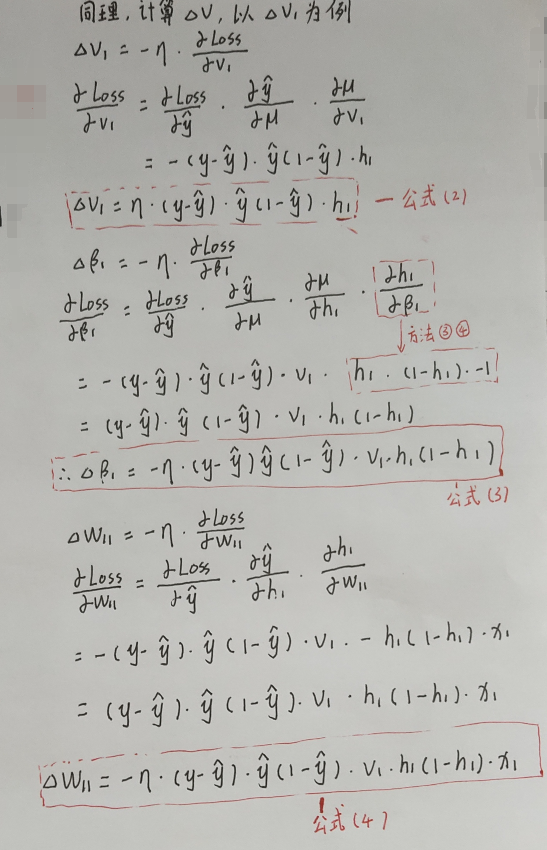 同理，计算 ΔV，以 ΔV₁ 为例
ΔV₁ = -η · ∂Loss/∂V₁
∂Loss/∂V₁ = ∂Loss/∂ŷ · ∂ŷ/∂μ · ∂μ/∂V₁
= -(y-ŷ) · ŷ(1-ŷ) · h₁
ΔV₁ = η · (y-ŷ) · ŷ(1-ŷ) · h₁ — 公式(2)
Δβ₁ = -η · ∂Loss/∂β₁
∂Loss/∂β₁ = ∂Loss/∂ŷ · ∂ŷ/∂μ · ∂μ/∂h₁ · ∂h₁/∂β₁
方法③④
= -(y-ŷ) · ŷ(1-ŷ) · V₁ · h₁ · (1-h₁) · -1
= (y-ŷ) · ŷ (1-ŷ) · V₁ · h₁ (1-h₁)
∴ Δβ₁ = -η · (y-ŷ) ŷ(1-ŷ) · V₁ · h₁ (1-h₁)
公式(3)
ΔW₁₁ = -η · ∂Loss/∂W₁₁
∂Loss/∂W₁₁ = ∂Loss/∂ŷ · ∂ŷ/∂h₁ · ∂h₁/∂W₁₁
= -(y-ŷ) · ŷ (1-ŷ) · V₁ · - h₁ (1-h₁) · x₁
= (y-ŷ) · ŷ (1-ŷ) · V₁ · h₁ (1-h₁) · x₁
ΔW₁₁ = -η · (y-ŷ) · ŷ(1-ŷ) · V₁ · h₁ (1-h₁) · x₁
公式(4)